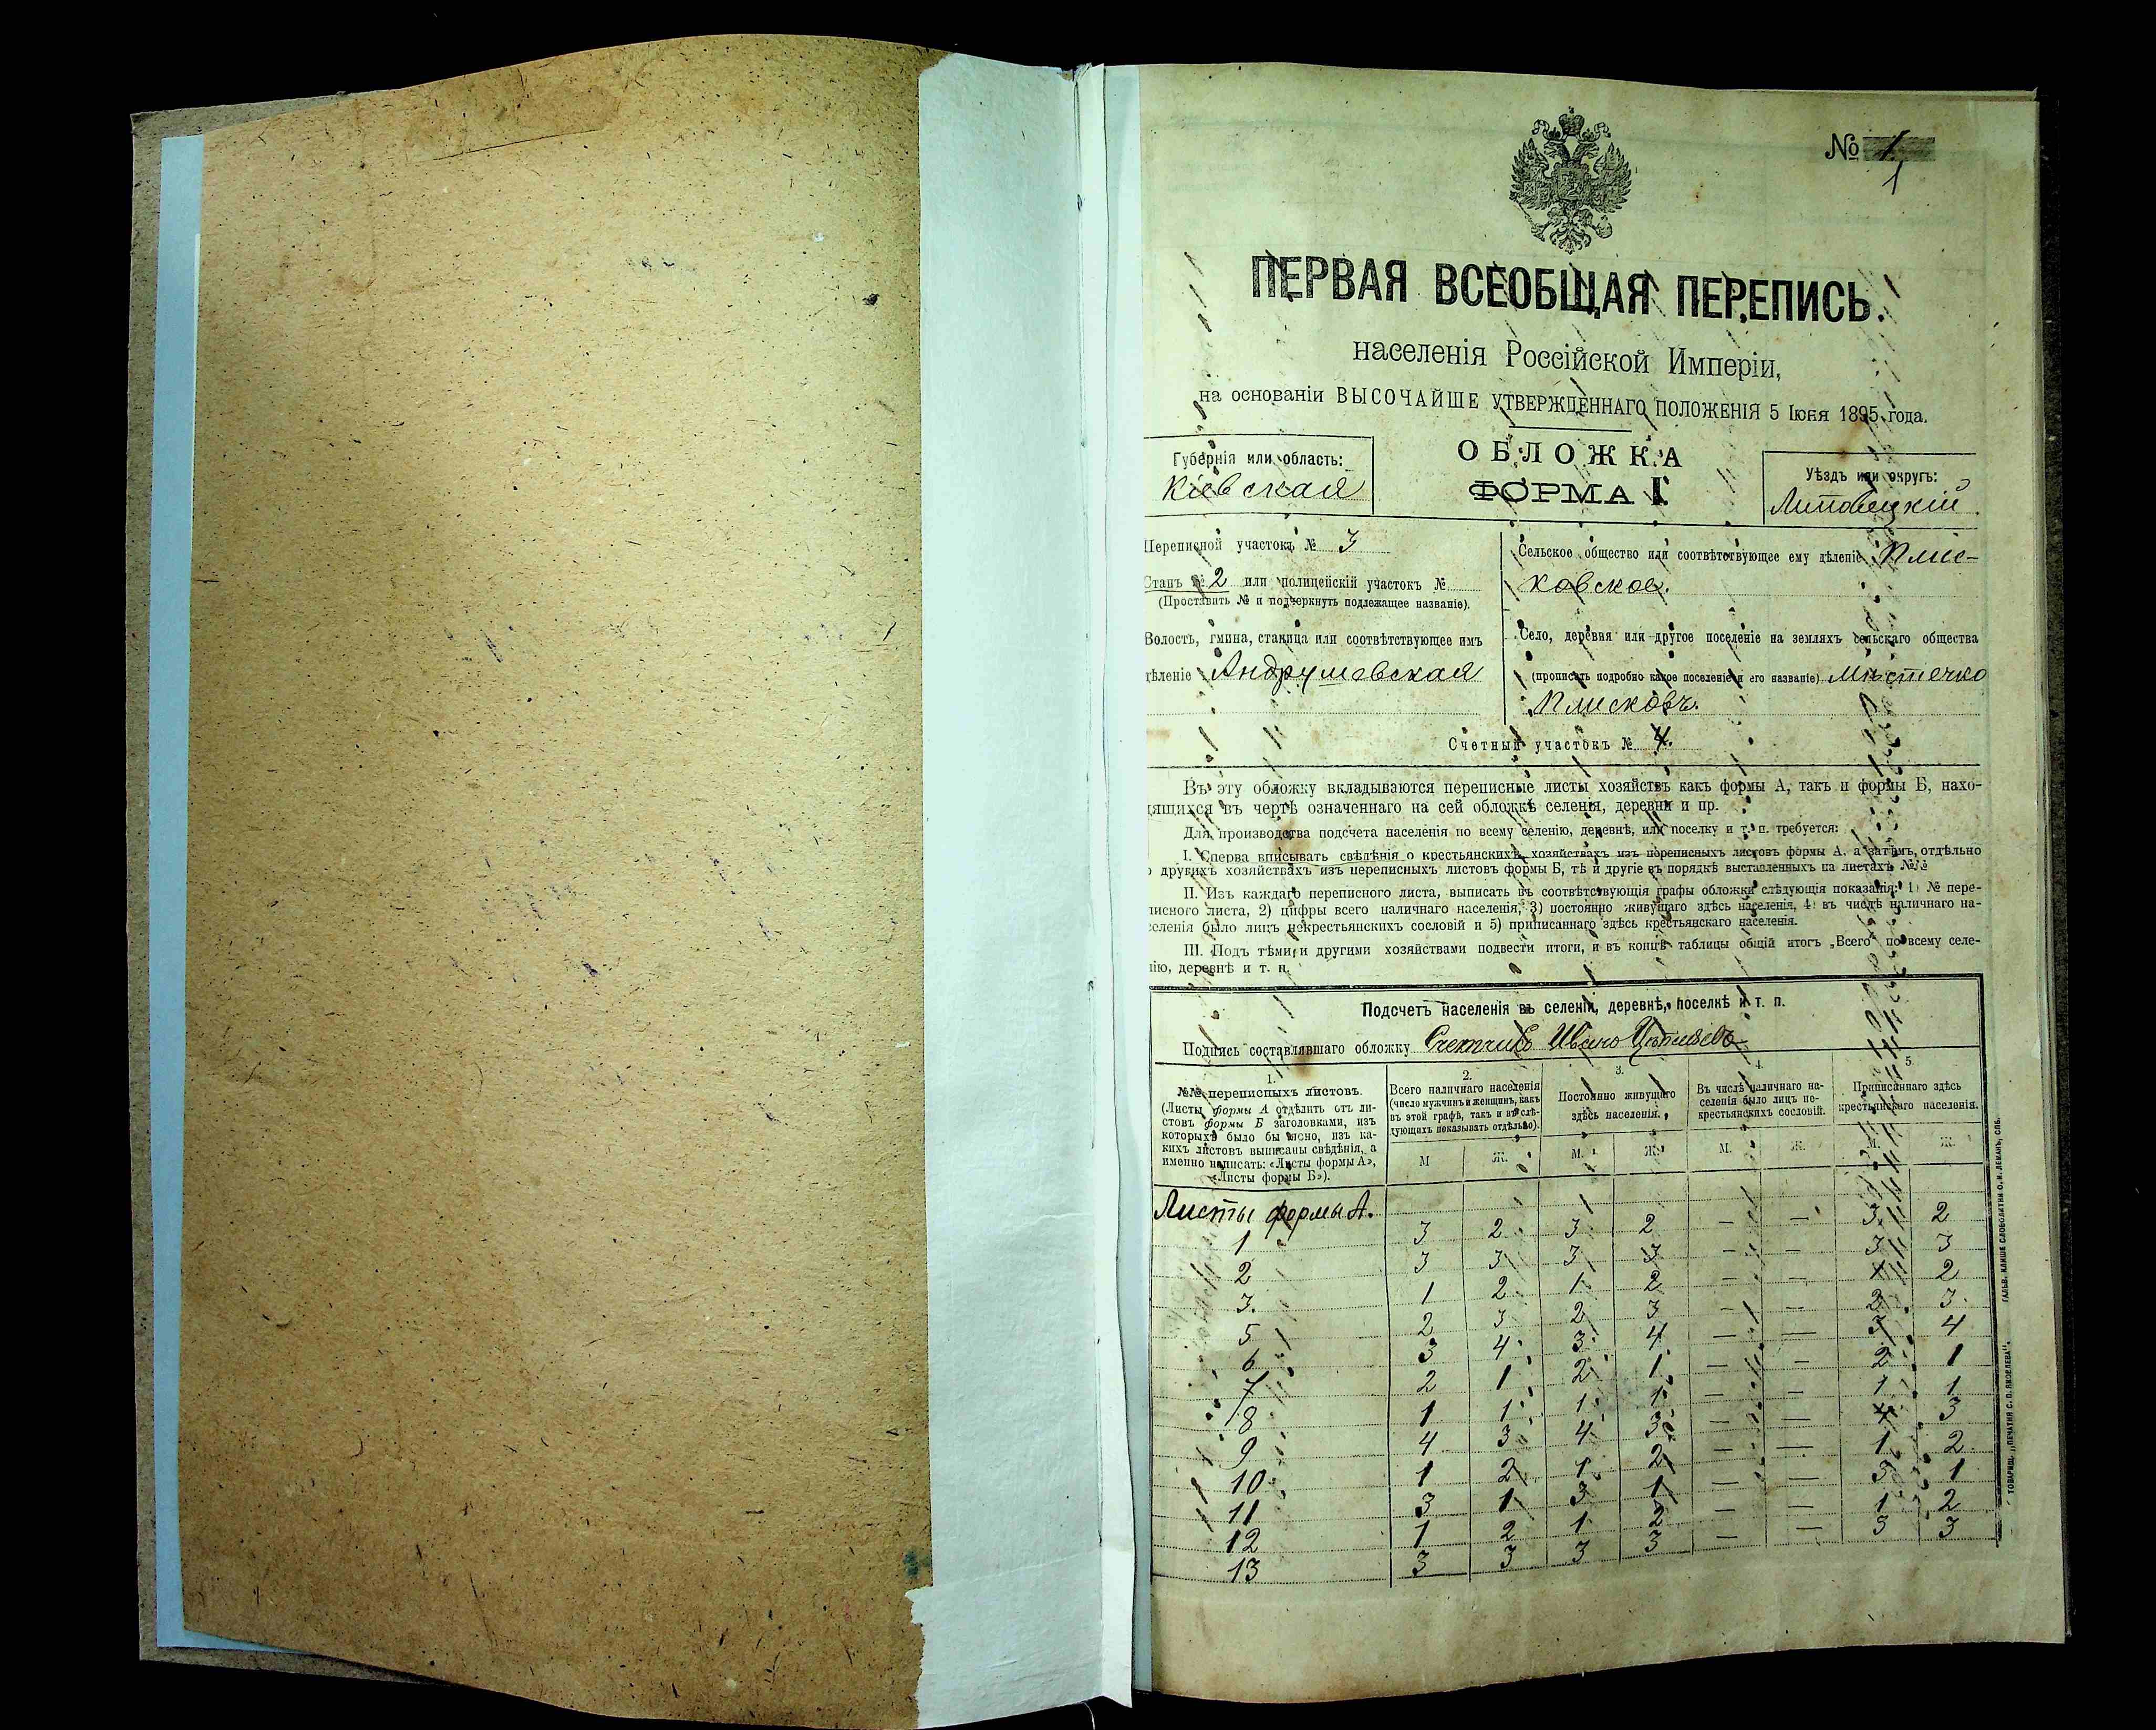 № 1
1
ПЕРВАЯ ВСЕОБЩАЯ ПЕРЕПИСЬ
населенія Россійской Имперіи,
на основаніи ВЫСОЧАЙШЕ УТВЕРЖДЕННАГО ПОЛОЖЕНІЯ 5 Іюня 1895 года.
Губернія или область:
Кіевская
ОБЛОЖКА
ФОРМА I
Уѣздъ или округъ:
Липовецкій
Переписной участокъ № 3
Станъ № 2 или полицейскій участокъ №
(Проставить № и подчеркнуть подлежащее названіе).
Волость, гмина, станица или соотвѣтствующее имъ
дѣленіе Андрушовская
Сельское общество или соотвѣтствующее ему дѣленіе Плис-
ковское.
Село, деревня или другое поселеніе на земляхъ сельскаго общества
(прописать подробно какое поселеніе и его названіе) Мѣстечко
Плисковъ.
Счетный участокъ № 4.
Въ эту обложку вкладываются переписные листы хозяйствъ какъ формы А, такъ и формы Б, нахо-
дящихся въ чертѣ означеннаго на сей обложкѣ селенія, деревни и пр.
Для производства подсчета населенія по всему селенію, деревнѣ, или поселку и т. п. требуется:
I. Сперва вписывать свѣдѣнія о крестьянскихъ хозяйствахъ изъ переписныхъ листовъ формы А, а затѣмъ, отдѣльно
о другихъ хозяйствахъ изъ переписныхъ листовъ формы Б, тѣ и другіе въ порядкѣ выставленныхъ на листахъ №№
II. Изъ каждаго переписного листа, выписать въ соотвѣтствующія графы обложки слѣдующія показанія: 1) № пере-
писного листа, 2) цифры всего наличнаго населенія, 3) постоянно живущаго здѣсь населенія, 4) въ числѣ наличнаго на-
селенія было лицъ некрестьянскихъ сословій и 5) приписаннаго здѣсь крестьянскаго населенія.
III. Подъ тѣми и другими хозяйствами подвести итоги, и въ концѣ таблицы общій итогъ „Всего" по всему селе-
нію, деревнѣ и т. п.
Подсчетъ населенія въ селеніи, деревнѣ, поселкѣ и т. п.
Подпись составлявшаго обложку Счетчикъ Иванъ
1.
№№ переписныхъ листовъ.
(Листы формы А отдѣлить отъ ли-
стовъ формы Б заголовками, изъ
которыхъ было бы ясно, изъ ка-
кихъ листовъ выписаны свѣдѣнія, а
именно написать: «Листы формы А»,
«Листы формы Б»).
2.
Всего наличнаго населенія
(число мужчинъ и женщинъ, какъ
въ этой графѣ, такъ и въ слѣ-
дующихъ показывать отдѣльно).
3.
Постоянно живущаго
здѣсь населенія.
4.
Въ числѣ наличнаго на-
селенія было лицъ не-
крестьянскихъ сословій.
5.
Приписаннаго здѣсь
крестьянскаго населенія.
М Ж. М. Ж. М. Ж. М. Ж.
Листы формы А.
1 3 2 3 2 — — 3 2
2 3 3 3 3 — — 3 3
3. 1 2 1 2 — — 1 2
5 2 3 2 3 — — 2 3
6 3 4 3 4 — — 3 4
7 2 1 2 1 — — 2 1
8 1 1 1 1 — — 1 1
9 4 3 4 3 — — 4 3
10 1 2 1 2 — — 1 2
11 3 1 3 1 — — 3 1
12 1 2 1 2 — — 1 2
13 3 3 3 3 — — 3 3
ТОВАРИЩ. „ПЕЧАТНЯ С. П. ЯКОВЛЕВА".
ГАЛЬВ. КЛИШЕ СЛОВОЛИТНИ О. И. ЛЕМАНЪ, СПБ.